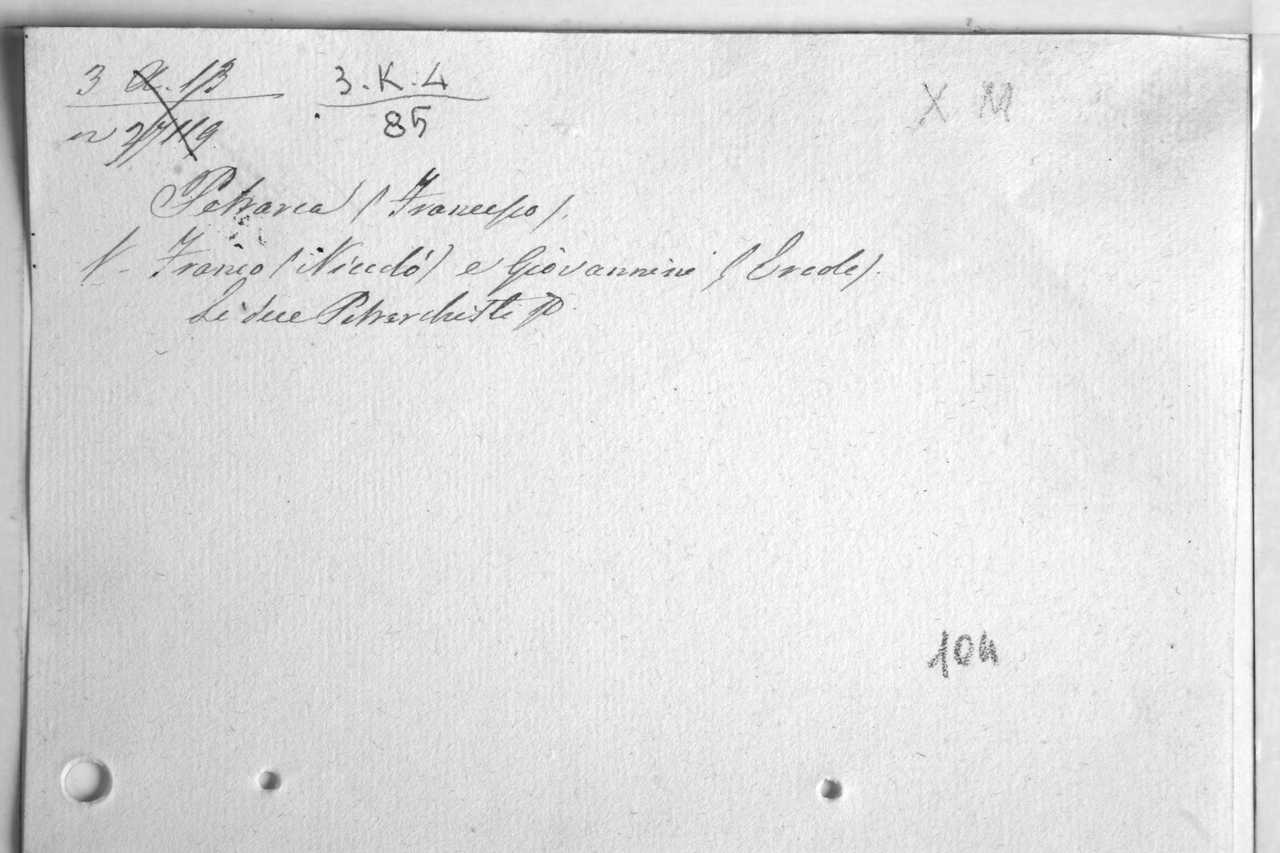 3 a. 13
3.K.4
n 2/7119
85
X M
Petrarca (Francesco).
V. Franco (Niccoló) e Giovannini (Ercole).
Li due Petrarchisti
104